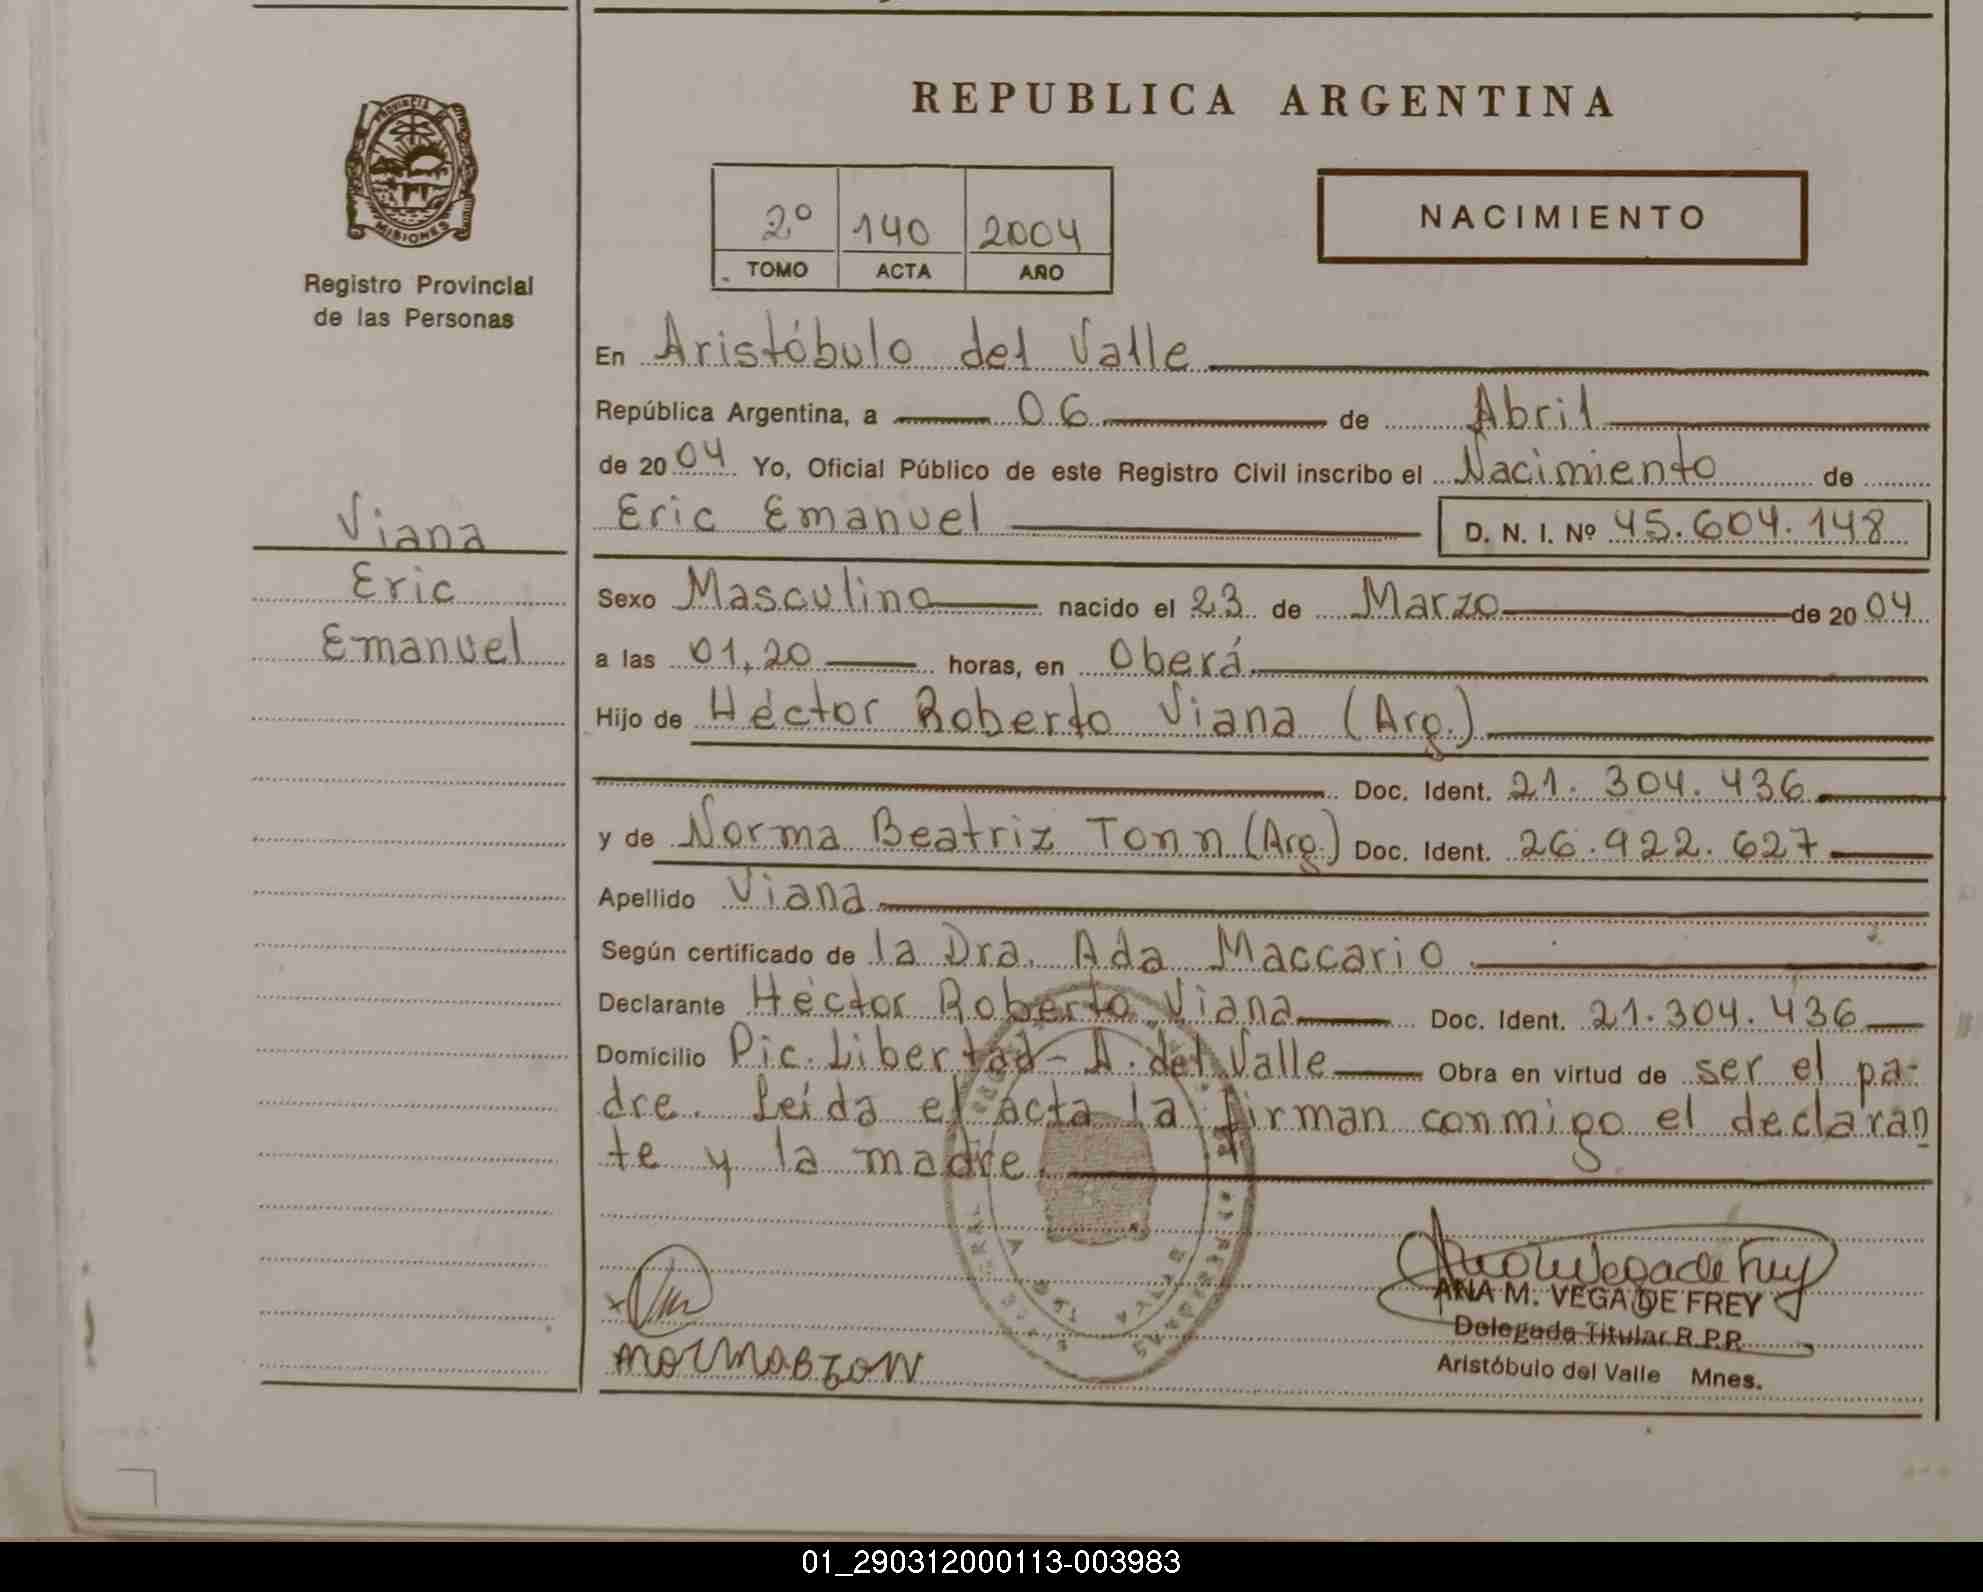 REPUBLICA ARGENTINA
PROVINCIA
MISIONES
Registro Provincial
de las Personas
2º 140 2004
TOMO ACTA AÑO
NACIMIENTO
En Aristóbulo del Valle
República Argentina, a 06 de Abril
de 2004 Yo, Oficial Público de este Registro Civil inscribo el Nacimiento de
Eric Emanuel D. N. I. Nº 45.604.148
Viana
Eric
Emanuel
Sexo Masculino nacido el 23 de Marzo de 2004
a las 01,20 horas, en Oberá
Hijo de Héctor Roberto Viana (Arg.)
Doc. Ident. 21.304.436
y de Norma Beatriz Tonn (Arg.) Doc. Ident. 26.922.627
Apellido Viana
Según certificado de la Dra. Ada Maccario
Declarante Héctor Roberto Viana Doc. Ident. 21.304.436
Domicilio Pic. Libertad - A. del Valle Obra en virtud de ser el pa-
dre. Leída el acta la firman conmigo el declaran
te y la madre.
ANA M. VEGA DE FREY
Delegada Titular R.P.P.
Aristóbulo del Valle Mnes.
01_290312000113-003983